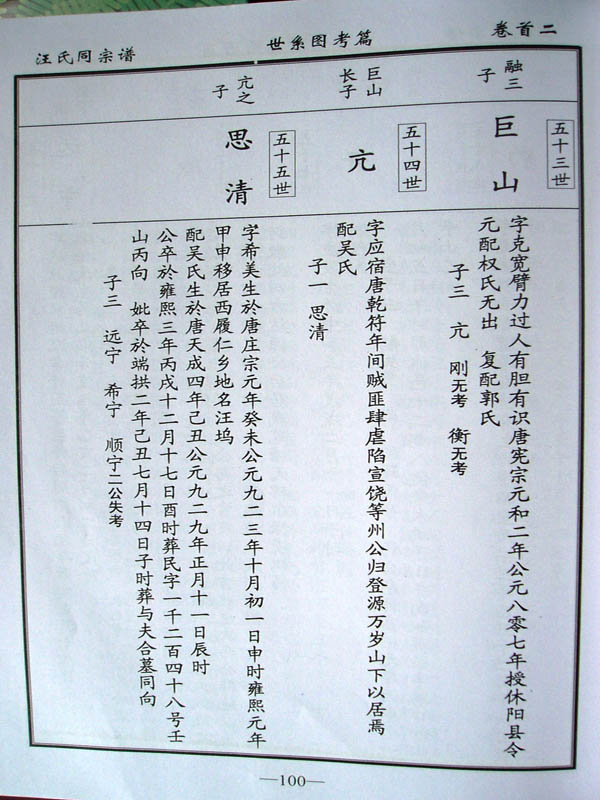 卷首二
世系图考篇
汪氏同宗谱
五十三世
融三
子
巨山
字克宽臂力过人有胆有识唐宪宗元和二年公元八零七年授休阳县令
元配权氏无出 复配郭氏
子三 亢 刚无考 衡无考
五十四世
巨山
长子
亢
字应宿唐乾符年间贼匪肆虐陷宣饶等州公归登源万岁山下以居焉
配吴氏
子一 思清
五十五世
亢之
子
思清
字希美生於唐庄宗元年癸未公元九二三年十月初一日申时雍熙元年
甲申移居西履仁乡地名汪坞
配吴氏生於唐天成四年己丑公元九二九年正月十一日辰时
公卒於雍熙三年丙戌十二月十七日酉时葬民字一千二百四十八号壬
山丙向 妣卒於端拱二年己丑七月十四日子时葬与夫合墓同向
子三 远宁 希宁 顺宁二公失考
—100—